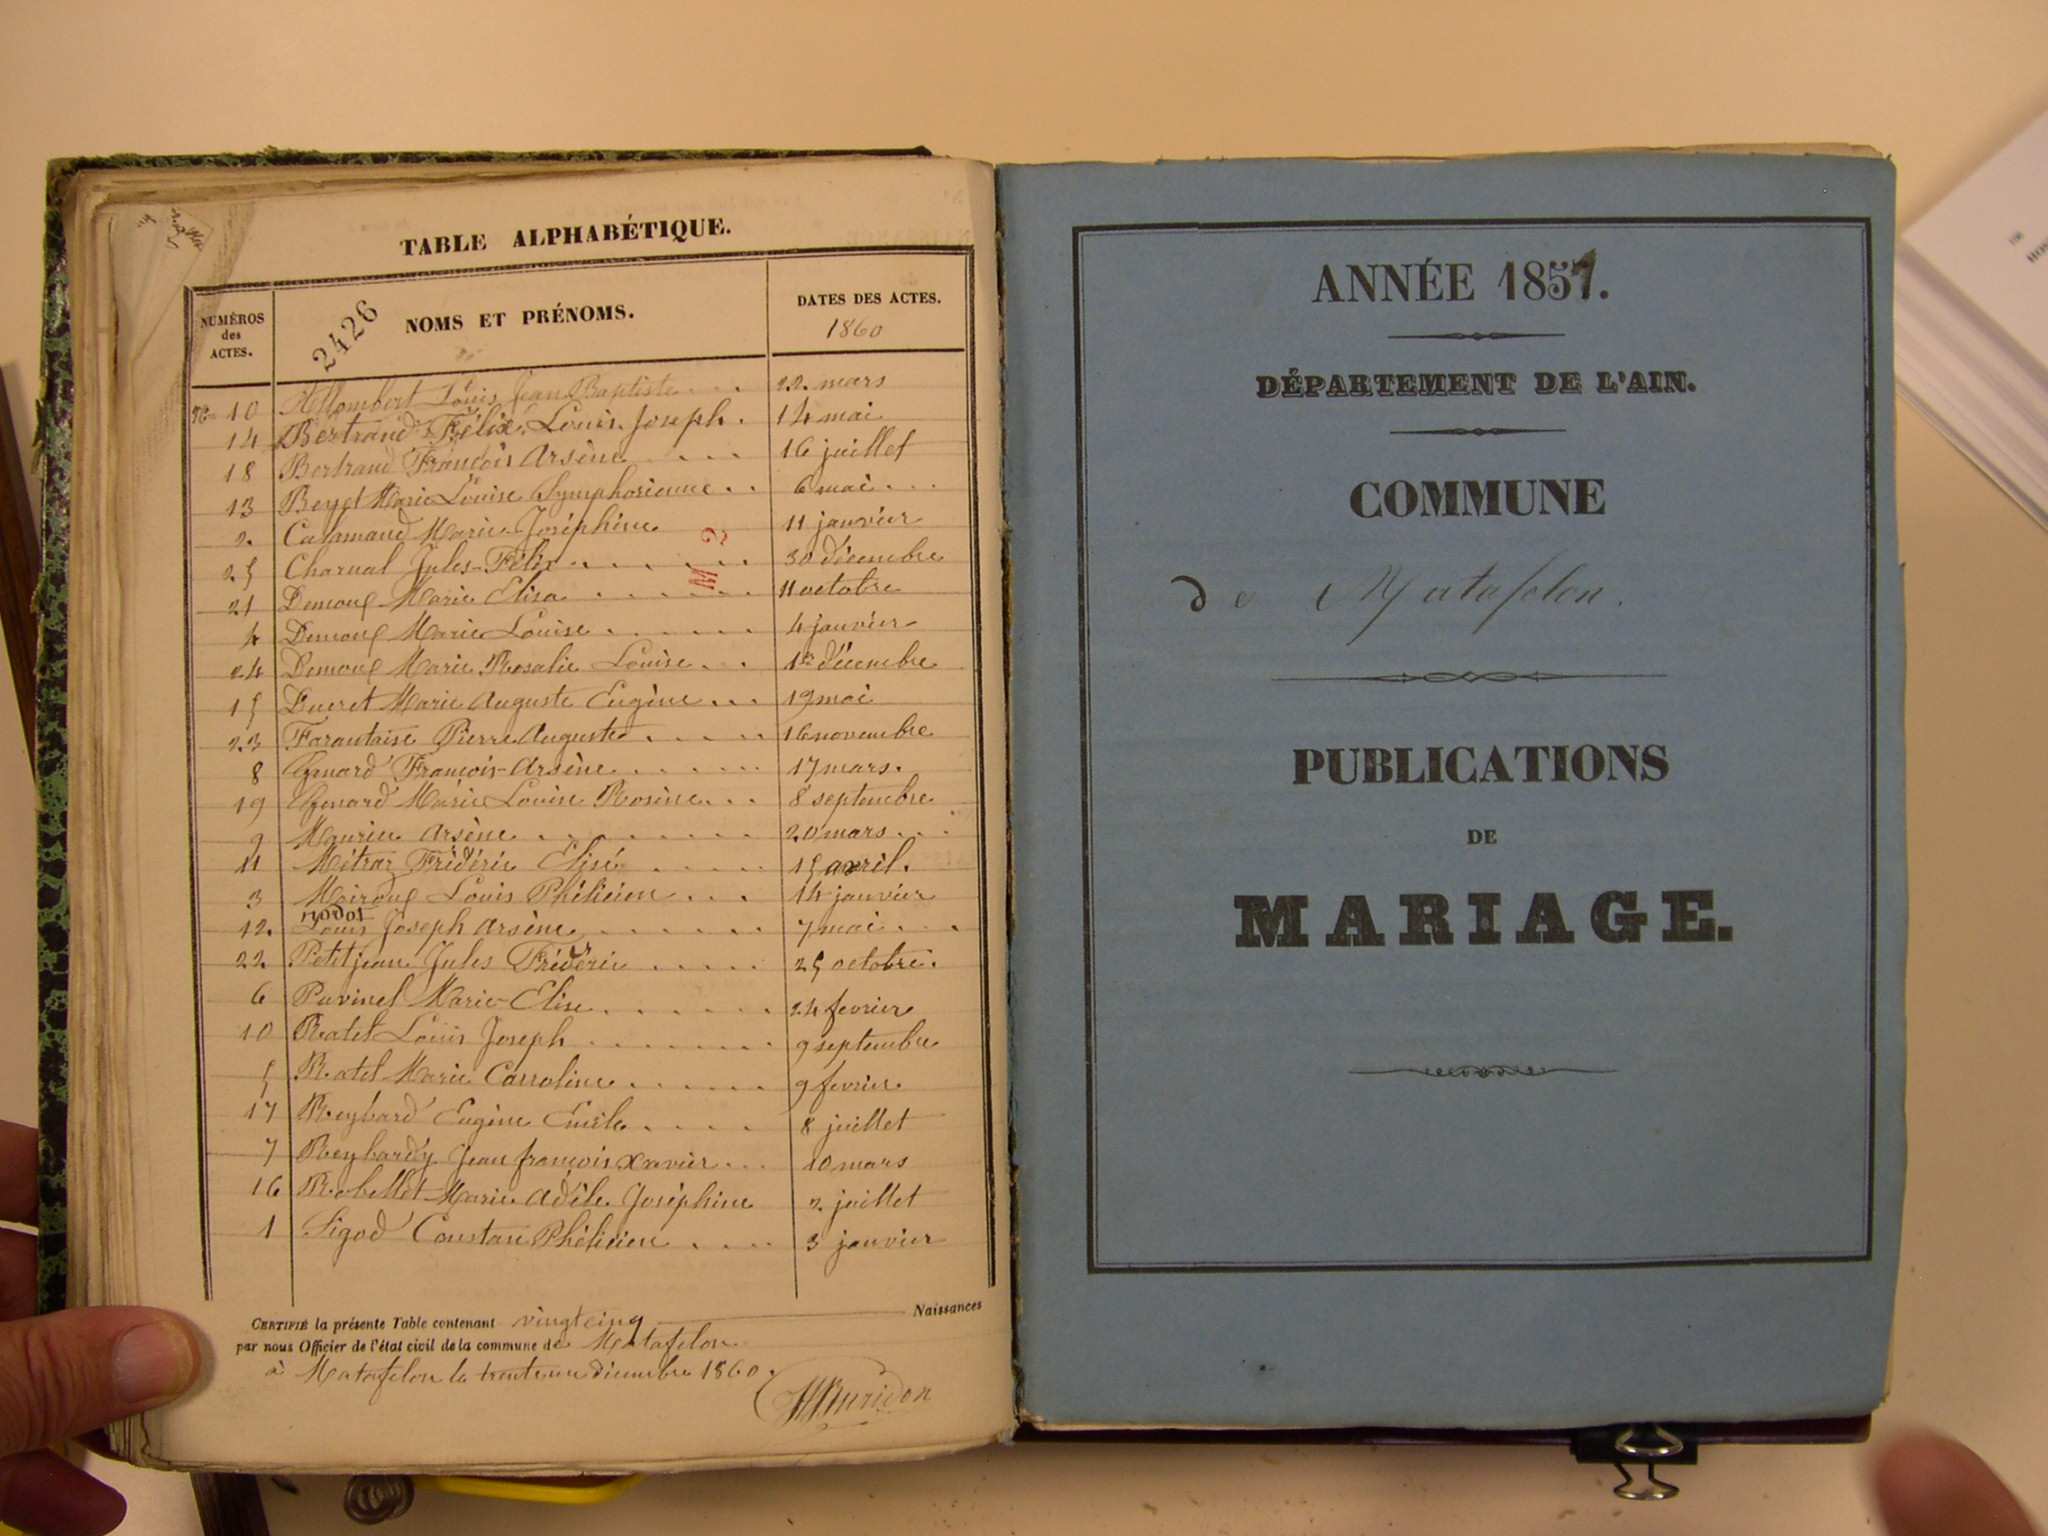 TABLE ALPHABÉTIQUE.
NUMÉROS des ACTES.
2426
NOMS ET PRÉNOMS.
DATES DES ACTES.
1860
No 10 Allombert Louis Jean Baptiste 22 mars
14 Bertrand Félix Louis Joseph 14 mai
18 Bertrand François Arsène 16 juillet
13 Marie Louise Symphorienne 6 mai
2 Marie Joséphine 11 janvier
M 2
25 Charnal Jules Félix 30 décembre
21 Marie Elisa 11 octobre
4 Marie Louise 4 janvier
24 Marie Rosalie Louise 1er décembre
15 Ducret Marie Auguste Eugène 19 mai
23 Farantaise Pierre Auguste 16 novembre
8 François Arsène 17 mars.
19 Marie Louise Rosine 8 septembre
9 Maurin Arsène 20 mars
11 Métraz Frédéric Elisé 15 avril.
3 Moiroux Louis Phélicien 14 janvier
nodot
12. Louis Joseph Arsène 7 mai
22 Petitjean Jules Frédéric 25 octobre.
6 Puvinel Marie-Elise 24 fevrier
10 Ratel Louis Joseph 9 septembre
5 Ratel Marie Carroline 9 fevrier
17 Reybard Eugène Emile 8 juillet
7 Reybardy Jean françois xavier 10 mars
16 Robellet Marie Adèle Joséphine 2 juillet
1 Sigod Constan Phélicien 3 janvier
CERTIFIÉ la présente Table contenant vingt cinq Naissances
par nous Officier de l'état civil de la commune de Matafelon
à Matafelon le trente un décembre 1860.
Buridon
ANNÉE 1857.
DÉPARTEMENT DE L'AIN.
COMMUNE
de Matafelon.
PUBLICATIONS
DE
MARIAGE.